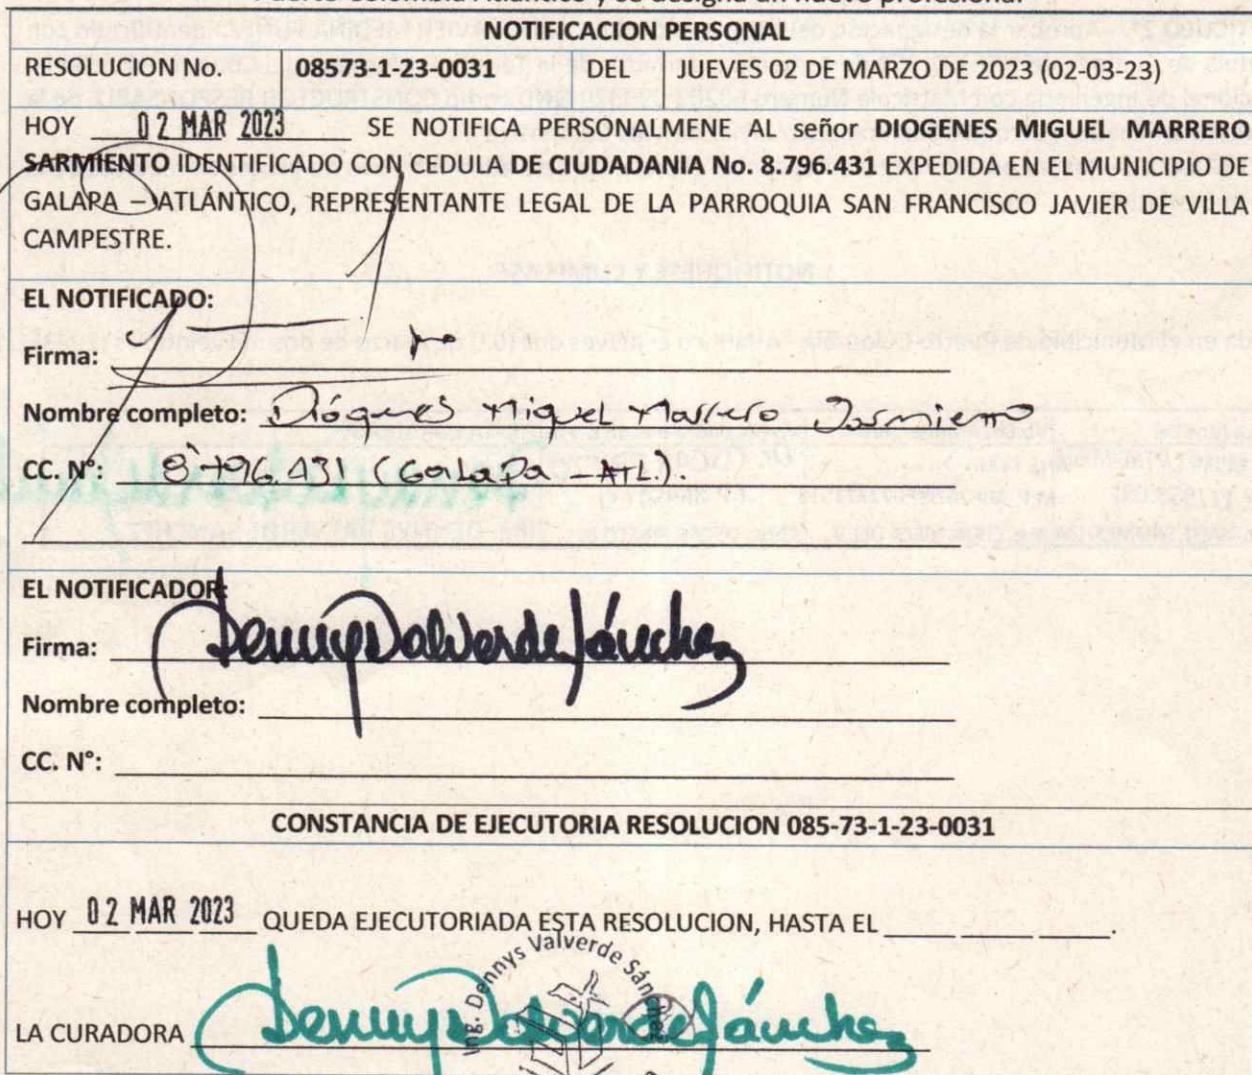 Puerto Colombia Atlántico y se designa un nuevo profesional
NOTIFICACION PERSONAL
RESOLUCION No. 08573-1-23-0031 DEL JUEVES 02 DE MARZO DE 2023 (02-03-23)
HOY 02 MAR 2023 SE NOTIFICA PERSONALMENE AL señor DIOGENES MIGUEL MARRERO
SARMIENTO IDENTIFICADO CON CEDULA DE CIUDADANIA No. 8.796.431 EXPEDIDA EN EL MUNICIPIO DE
GALAPA – ATLÁNTICO, REPRESENTANTE LEGAL DE LA PARROQUIA SAN FRANCISCO JAVIER DE VILLA
CAMPESTRE.
EL NOTIFICADO:
Firma:
Nombre completo: Diógenes Miguel Marrero Sarmiento
CC. N°: 8'796.431 (Galapa - ATL).
EL NOTIFICADOR:
Firma: Dennys Valverde Sánchez
Nombre completo:
CC. N°:
CONSTANCIA DE EJECUTORIA RESOLUCION 085-73-1-23-0031
HOY 02 MAR 2023 QUEDA EJECUTORIADA ESTA RESOLUCION, HASTA EL
Ing. Dennys Valverde Sánchez
LA CURADORA Dennys Valverde Sánchez